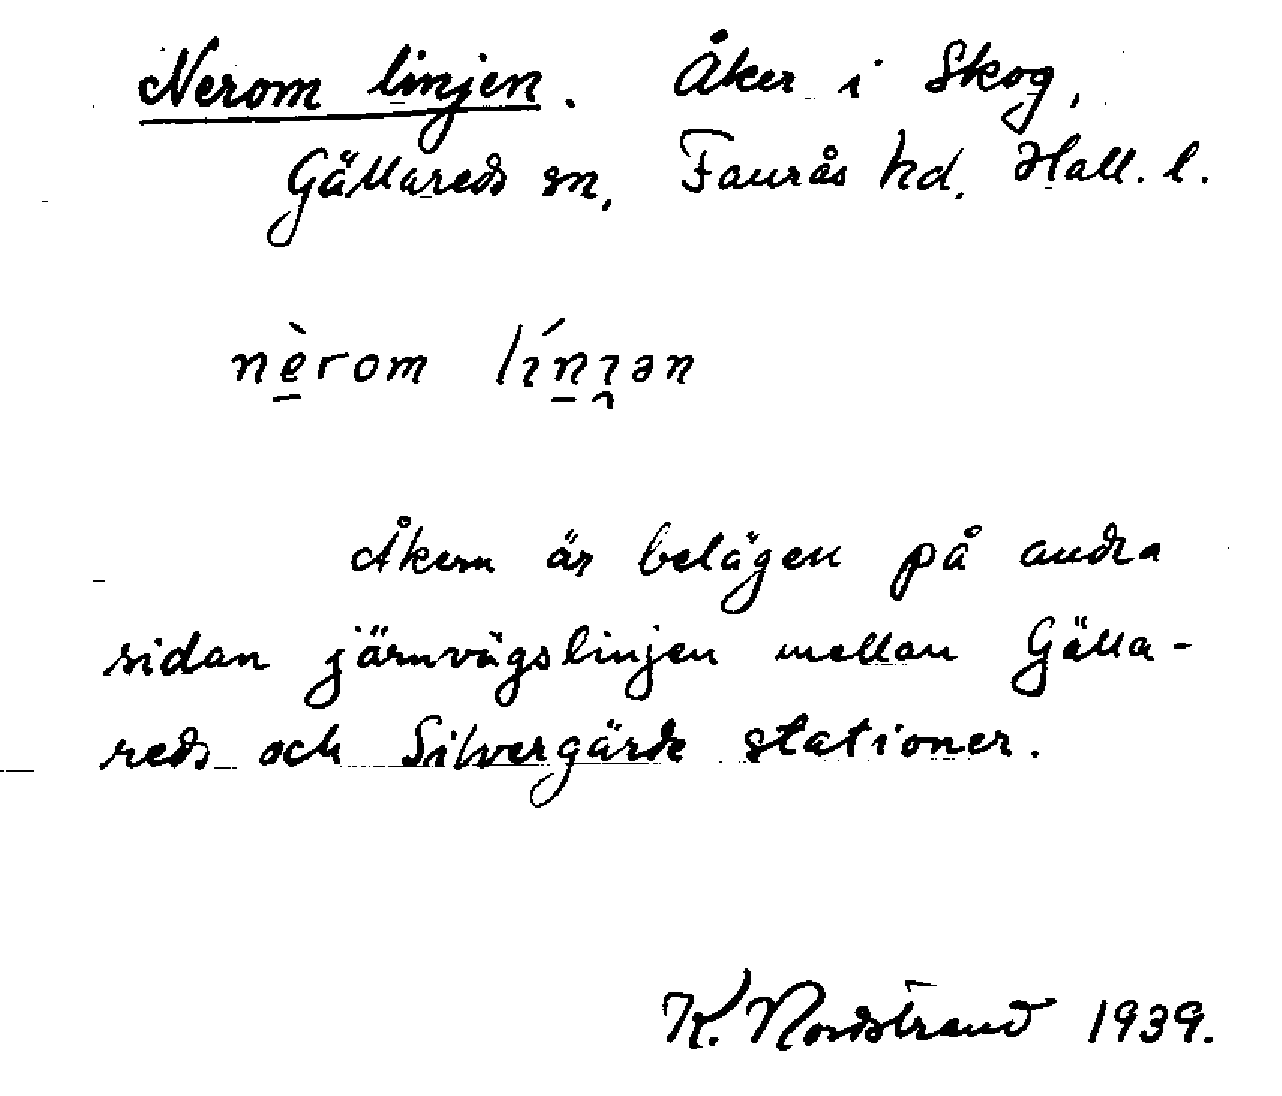 Nerom linjen. Åker i Skog,
Gällareds sn, Faurås hd. Hall. l.
nè̱rom lɪ́ṉɪ̯ən
Åkern är belägen på andra
sidan järnvägslinjen mellan Gälla-
reds och Silvergärde stationer.
K. Nordstrand 1939.